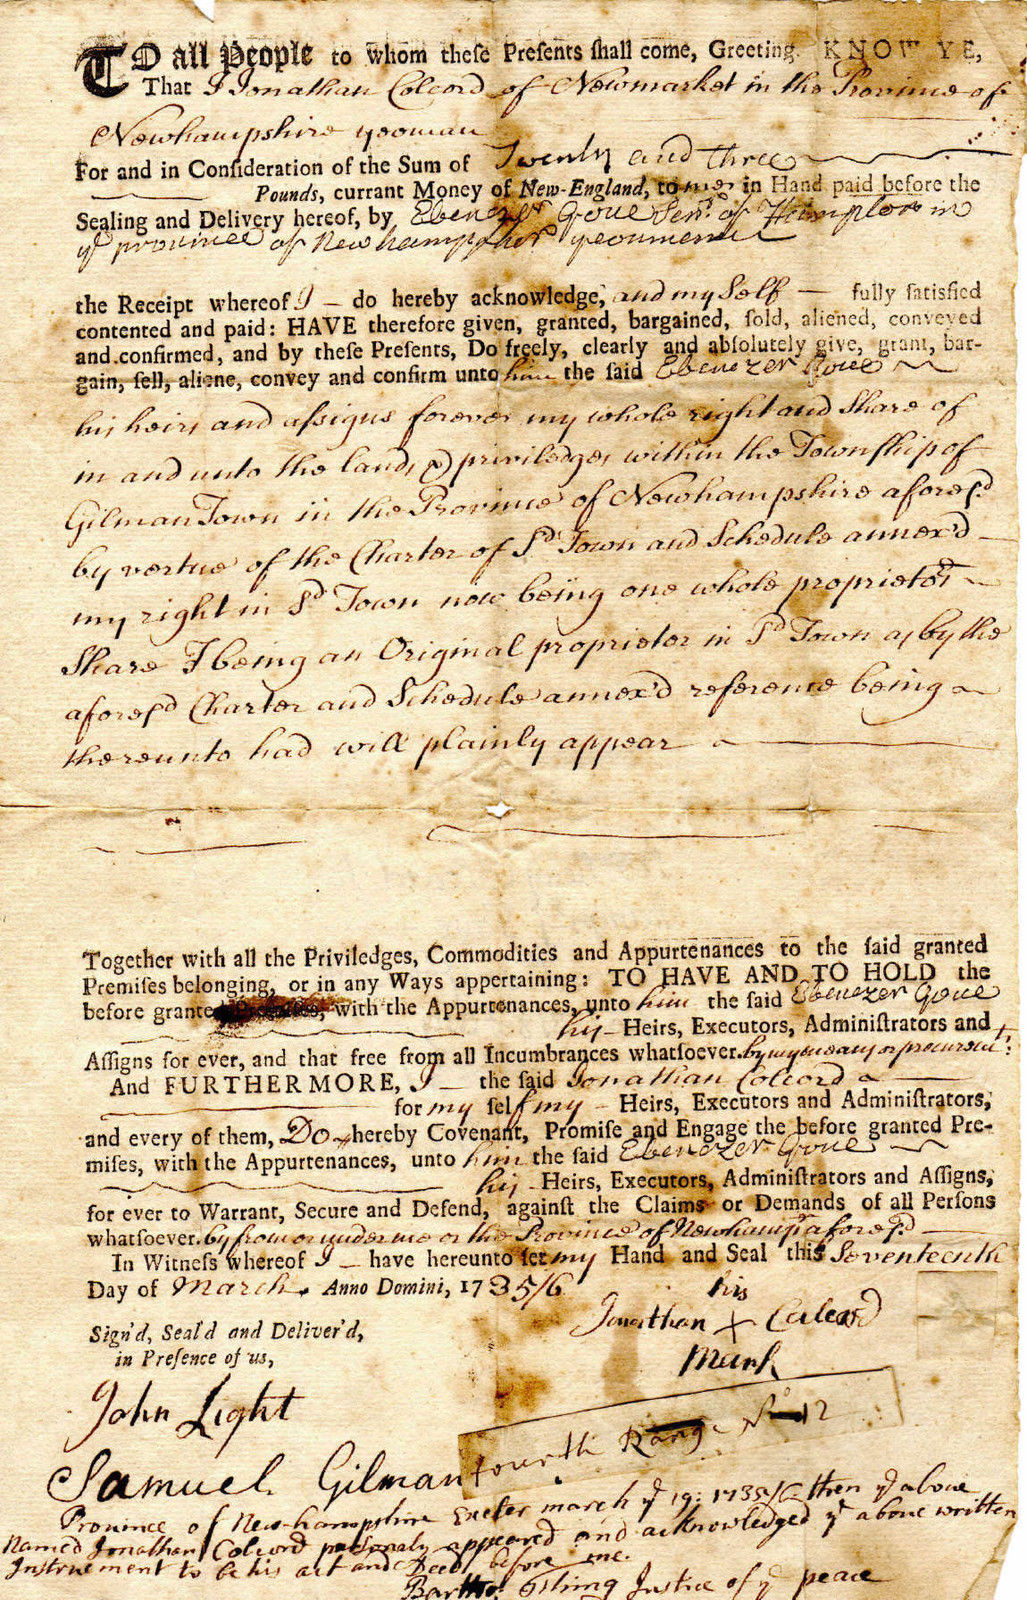 TO all People to whom these Presents shall come, Greeting. KNOW YE,
That I Jonathan Colcord of Newmarket in the Province of
Newhampshire yeoman
For and in Consideration of the Sum of Twenty and three
Pounds, currant Money of New-England, to me in Hand paid before the
Sealing and Delivery hereof, by Ebenezer Goue Senr. of Hampton in
ye province of New hampsher yeoumen
the Receipt whereof I do hereby acknowledge, and my Self fully satisfied
contented and paid: HAVE therefore given, granted, bargained, sold, aliened, conveyed
and confirmed, and by these Presents, Do freely, clearly and absolutely give, grant, bar-
gain, sell, aliene, convey and confirm unto him the said Ebenezer Goue
his heirs and assigns forever my whole right and Share of
in and unto the lands & priviledges within the Township of
Gilman Town in the Province of Newhampshire aforesd.
by vertue of the Charter of Sd Town and Schedule annex'd
my right in Sd Town now being one whole proprietors
Share I being an Original proprietor in Sd Town as by the
aforesd Charter and Schedule annex'd reference being
thereunto had will plainly appear
Together with all the Priviledges, Commodities and Appurtenances to the said granted
Premises belonging, or in any Ways appertaining: TO HAVE AND TO HOLD the
before granted Premises, with the Appurtenances, unto him the said Ebenezer Goue
his Heirs, Executors, Administrators and
Assigns for ever, and that free from all Incumbrances whatsoever. by my means or procurmt.
And FURTHERMORE, I the said Jonathan Colcord
for my self my Heirs, Executors and Administrators,
and every of them, Do hereby Covenant, Promise and Engage the before granted Pre-
mises, with the Appurtenances, unto him the said Ebenezer Goue
his Heirs, Executors, Administrators and Assigns,
for ever to Warrant, Secure and Defend, against the Claims or Demands of all Persons
whatsoever. by from or under me or the Province of Newhampr aforesd.
In Witness whereof I have hereunto set my Hand and Seal this Seventeenth
Day of March. Anno Domini, 1735/6
his
Jonathan + Colcord
Mark
Sign'd, Seal'd and Deliver'd,
in Presence of us,
John Light
Samuel Gilman
fourth Range No 12
Province of New-hampshire Exeter march ye 19: 1735/6 then ye above
Named Jonathan Colcord personaly appeared and acknowledged ye above written
Instruement to be his act and Deed before me.
Bartho: Justice of ye peace